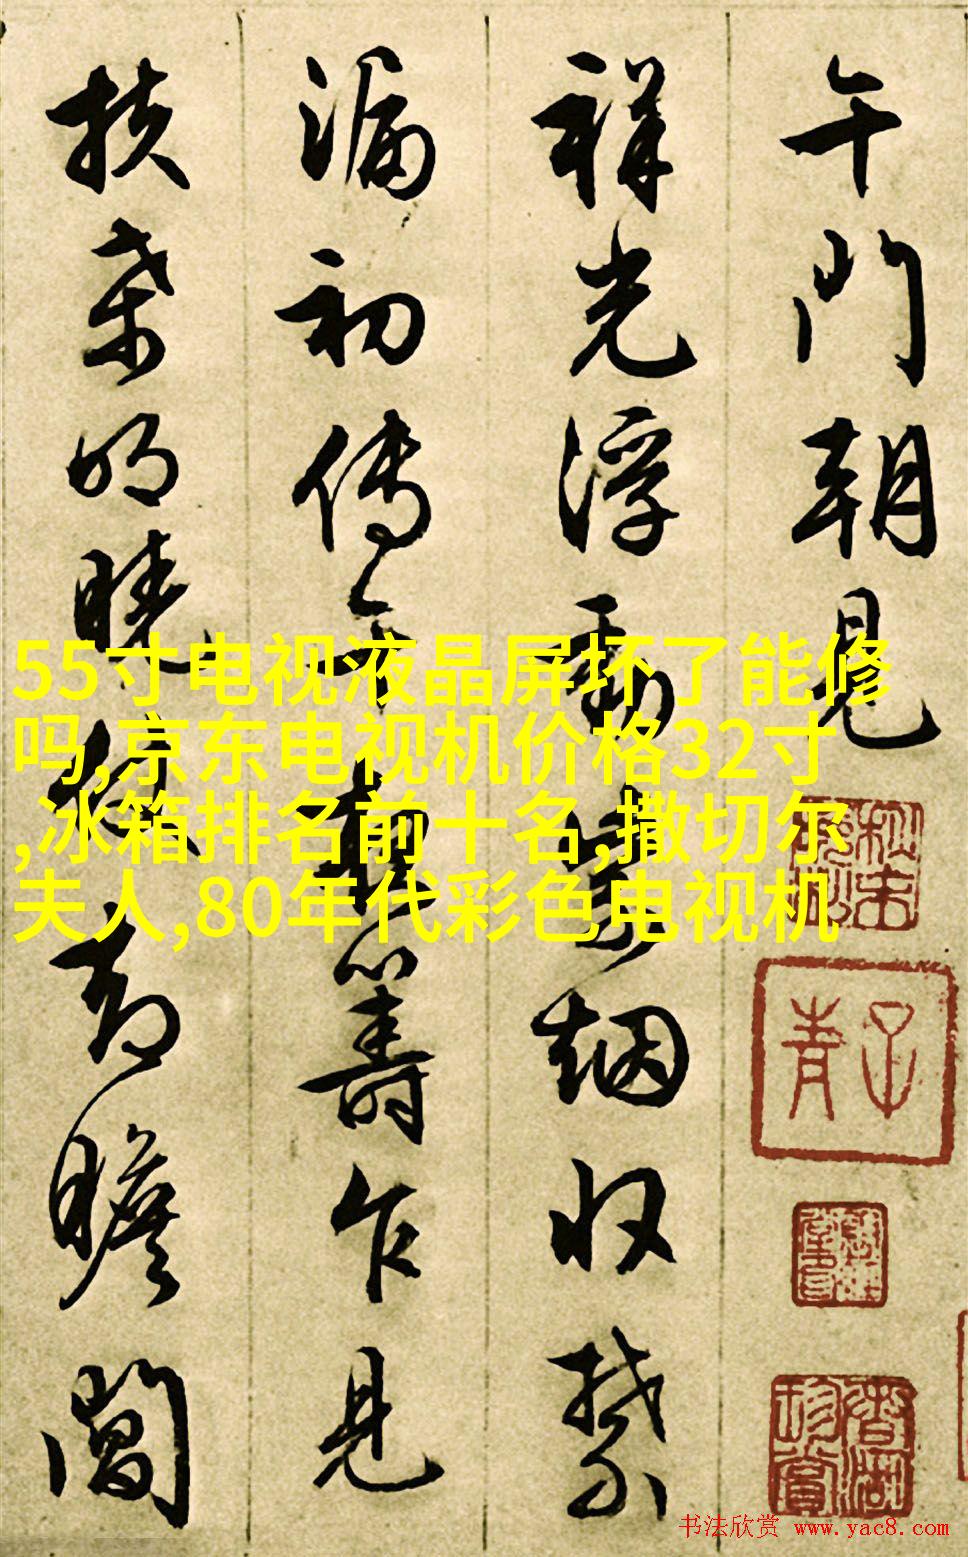 午門朝見
祥光浮動烟収禁
漏初傳籌乍見
扶桑明曉瞻閶
55寸电视液晶屏坏了能修
吗,京东电视机价格32寸
,冰箱排名前十名,撒切尔
夫人,80年代彩色电视机
子青
书法欣赏 www.yac8.com